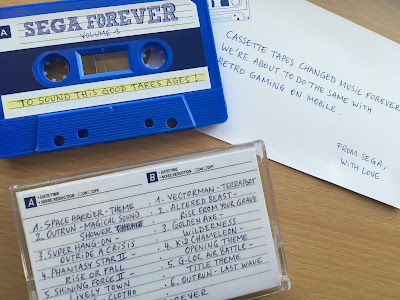 A
SEGA FOREVER
VOLUME 1
TO SOUND THIS GOOD TAKES AGES !
CASSETTE TAPES CHANGED MUSIC FOREVER
WE'RE ABOUT TO DO THE SAME WITH
RETRO GAMING ON MOBILE.
FROM SEGA,
WITH LOVE.
A
• DATE/TIME
• NOISE REDUCTION □ON □OFF
1. SPACE HARRIER - THEME
2. OUTRUN - MAGICAL SOUND
SHOWER
3. SUPER HANG-ON -
OUTSIDE A CRISIS
4. PHANTASY STAR II -
RISE OR FALL
5. SHINING FORCE II -
LIVELY TOWN
CLOTHO
B
• DATE/TIME
• NOISE REDUCTION □ON □OFF
1. VECTORMAN - TERRAPORT
2. ALTERED BEAST -
RISE FROM YOUR GRAVE
3. GOLDEN AXE -
WILDERNESS
4. KID CHAMELEON -
OPENING THEME
5. G-LOC AIR BATTLE -
TITLE THEME
6. OUTRUN - LAST WAVE
FOREVER